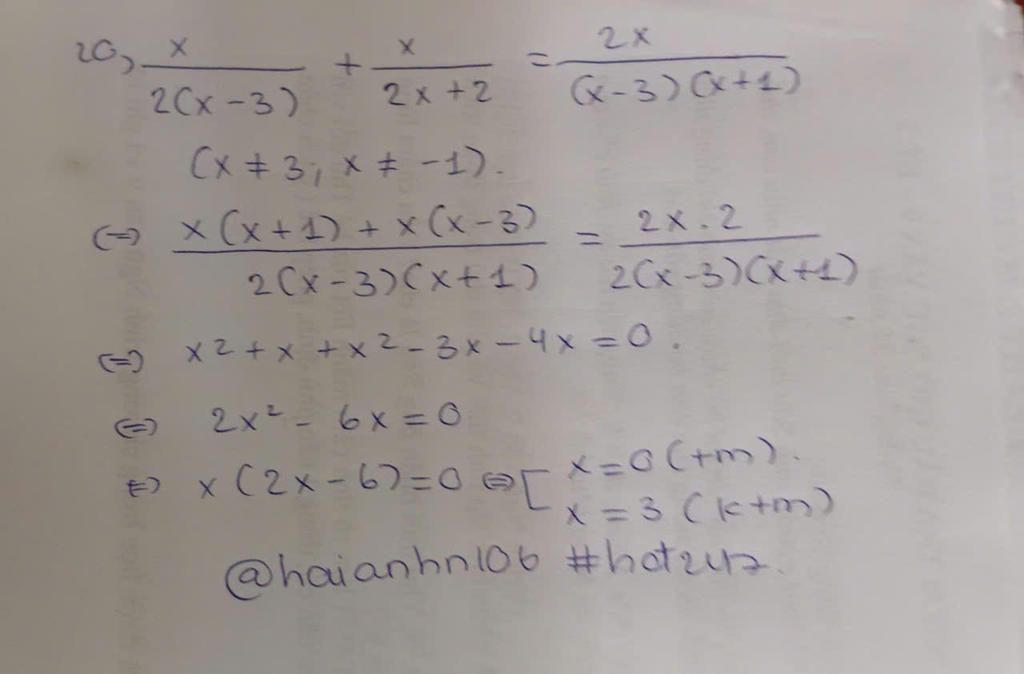 20, x/(2(x-3)) + x/(2x+2) = 2x/((x-3)(x+1))
(x ≠ 3; x ≠ -1).
(=) (x(x+1) + x(x-3))/(2(x-3)(x+1)) = (2x.2)/(2(x-3)(x+1))
(=) x2 + x + x2 - 3x - 4x = 0.
(=) 2x² - 6x = 0
(=) x(2x-6)=0 (=) [ x=0 (+m).
x = 3 (k+m)
@haianhn106 #hot247.